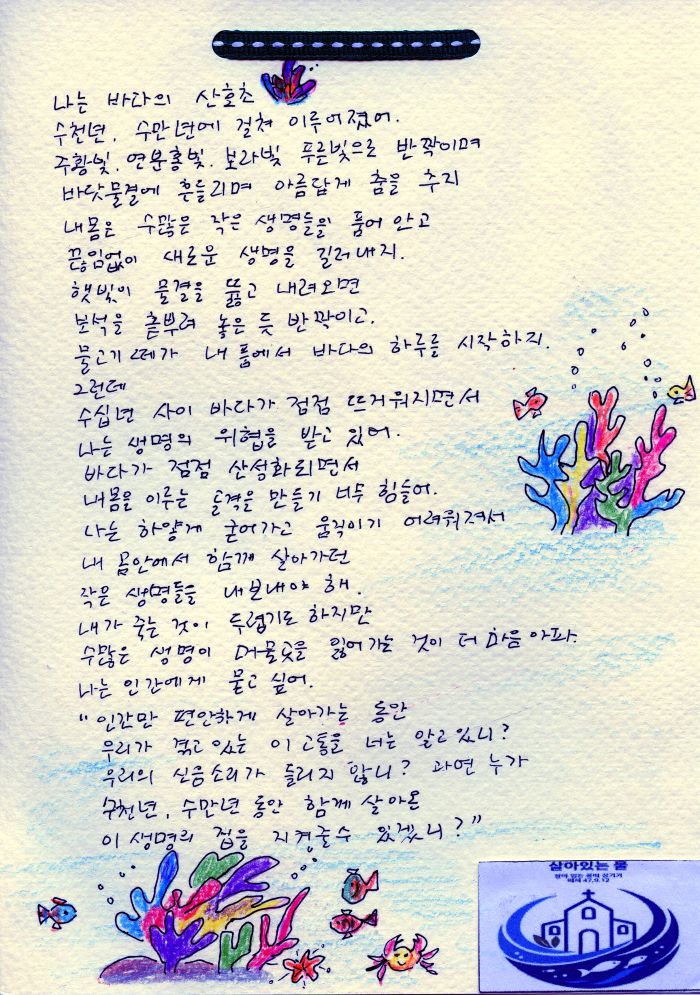 나는 바다의 산호초
수천년, 수만년에 걸쳐 이루어졌어.
주황빛, 연분홍빛, 보라빛 푸른빛으로 반짝이며
바닷물결에 흔들리며 아름답게 춤을 추지
내몸은 수많은 작은 생명들을 품어 안고
끊임없이 새로운 생명을 길러내지.
햇빛이 물결을 뚫고 내려오면
보석을 흩뿌려 놓은 듯 반짝이고,
물고기떼가 내 품에서 바다의 하루를 시작하지.
그런데
수십년 사이 바다가 점점 뜨거워지면서
나는 생명의 위협을 받고 있어.
바다가 점점 산성화되면서
내몸을 이루는 골격을 만들기 너무 힘들어.
나는 하얗게 굳어가고 움직이기 어려워져서
내 몸안에서 함께 살아가던
작은 생명들을 내보내야 해.
내가 죽는 것이 두렵기도 하지만
수많은 생명이 머물곳을 잃어가는 것이 더 마음 아파.
나는 인간에게 묻고 싶어.
"인간만 편안하게 살아가는 동안
우리가 겪고 있는 이 고통을 너는 알고있니?
우리의 신음소리가 들리지 않니? 과연 누가
수천년, 수만년 동안 함께 살아온
이 생명의 집을 지켜줄수 있겠니?"
살아있는 물
에제 47,9.12